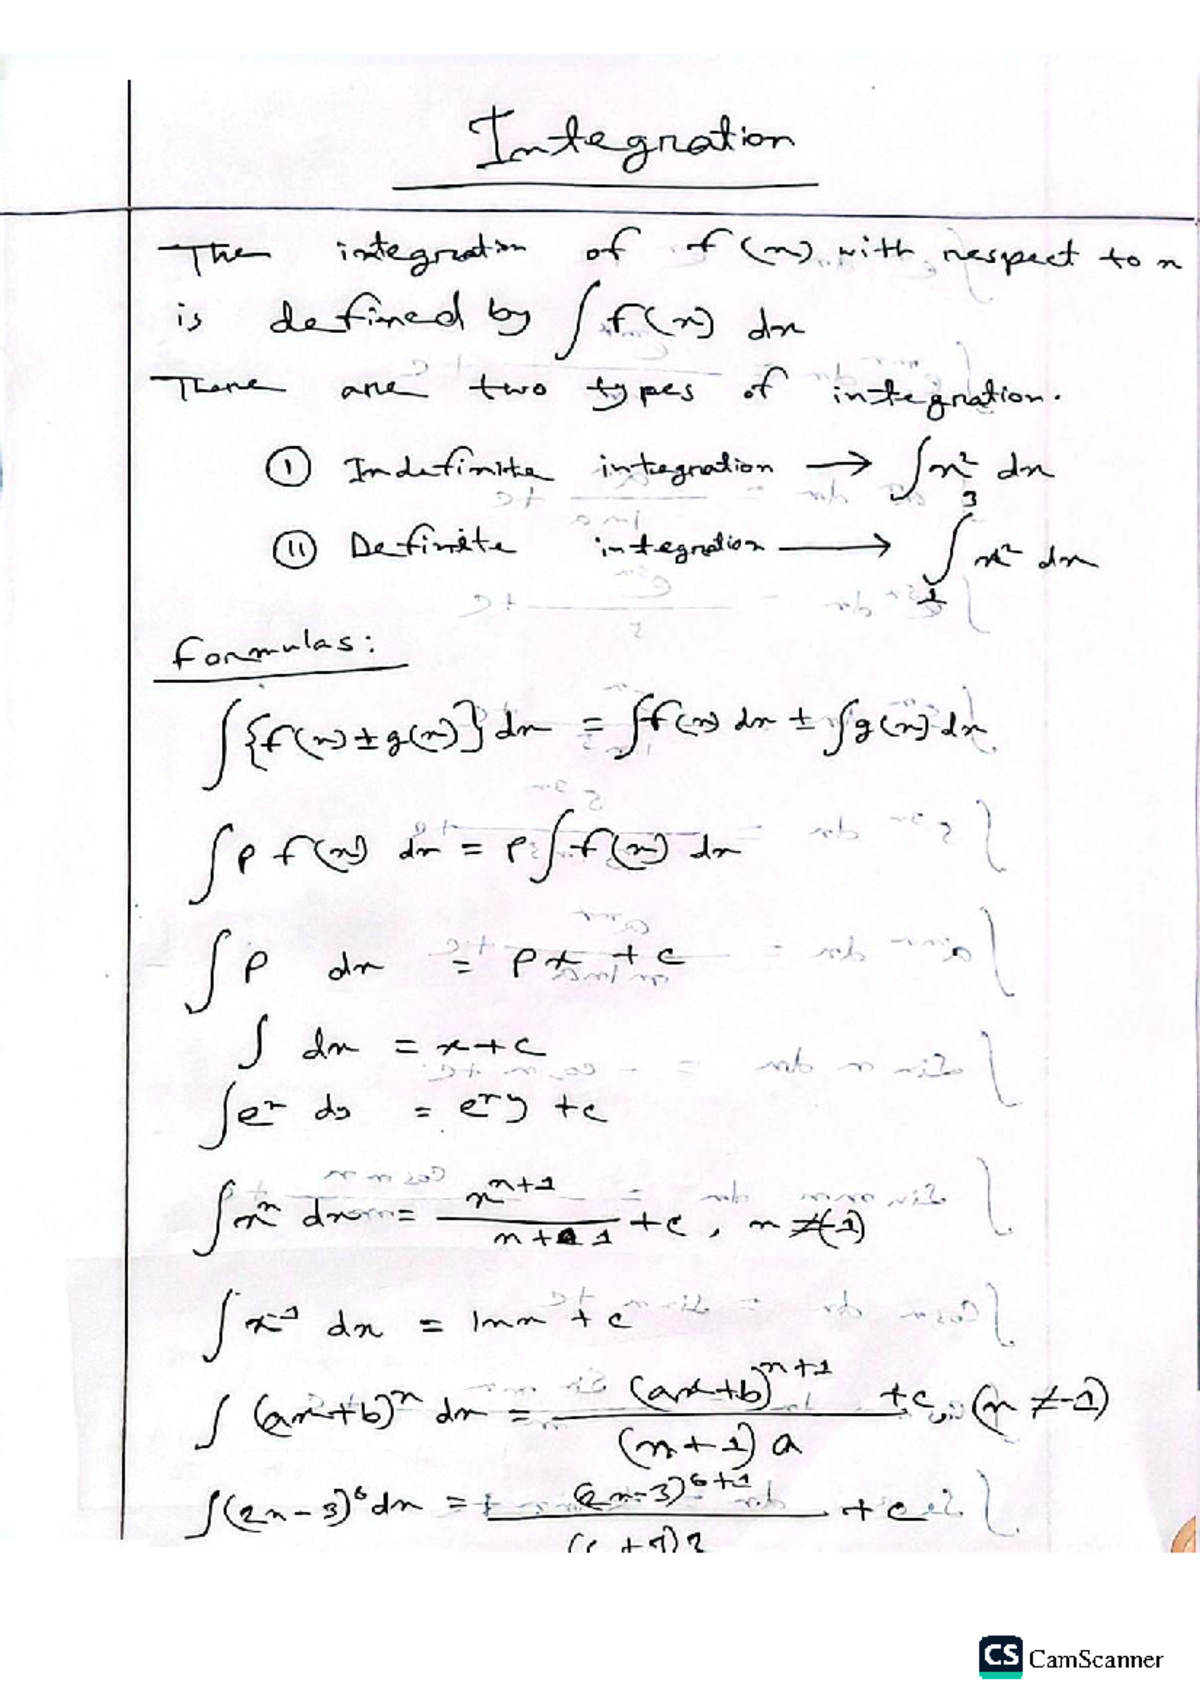 Integration
The integration of f(x) with respect to x
is defined by ∫ f(x) dx
There are two types of integration.
(i) Indefinite integration → ∫x² dx
(ii) Definite integration → ∫₁³ x² dx
Formulas:
∫{f(x) ± g(x)} dx = ∫f(x) dx ± ∫g(x) dx
∫ p f(x) dx = p ∫ f(x) dx
∫ p dx = px + c
∫ dx = x + c
∫ eˣ dy = eˣy + c
∫ xⁿ dx = xⁿ⁺¹ / (n+1) + c, n ≠ (-1)
∫ x⁻¹ dx = lnx + c
∫ (ax+b)ⁿ dx = (ax+b)ⁿ⁺¹ / (n+1) a + c, (n ≠ -1)
∫(2x-3)⁶ dx = (2x-3)⁶⁺¹ / (6+1)2 + c
CS CamScanner